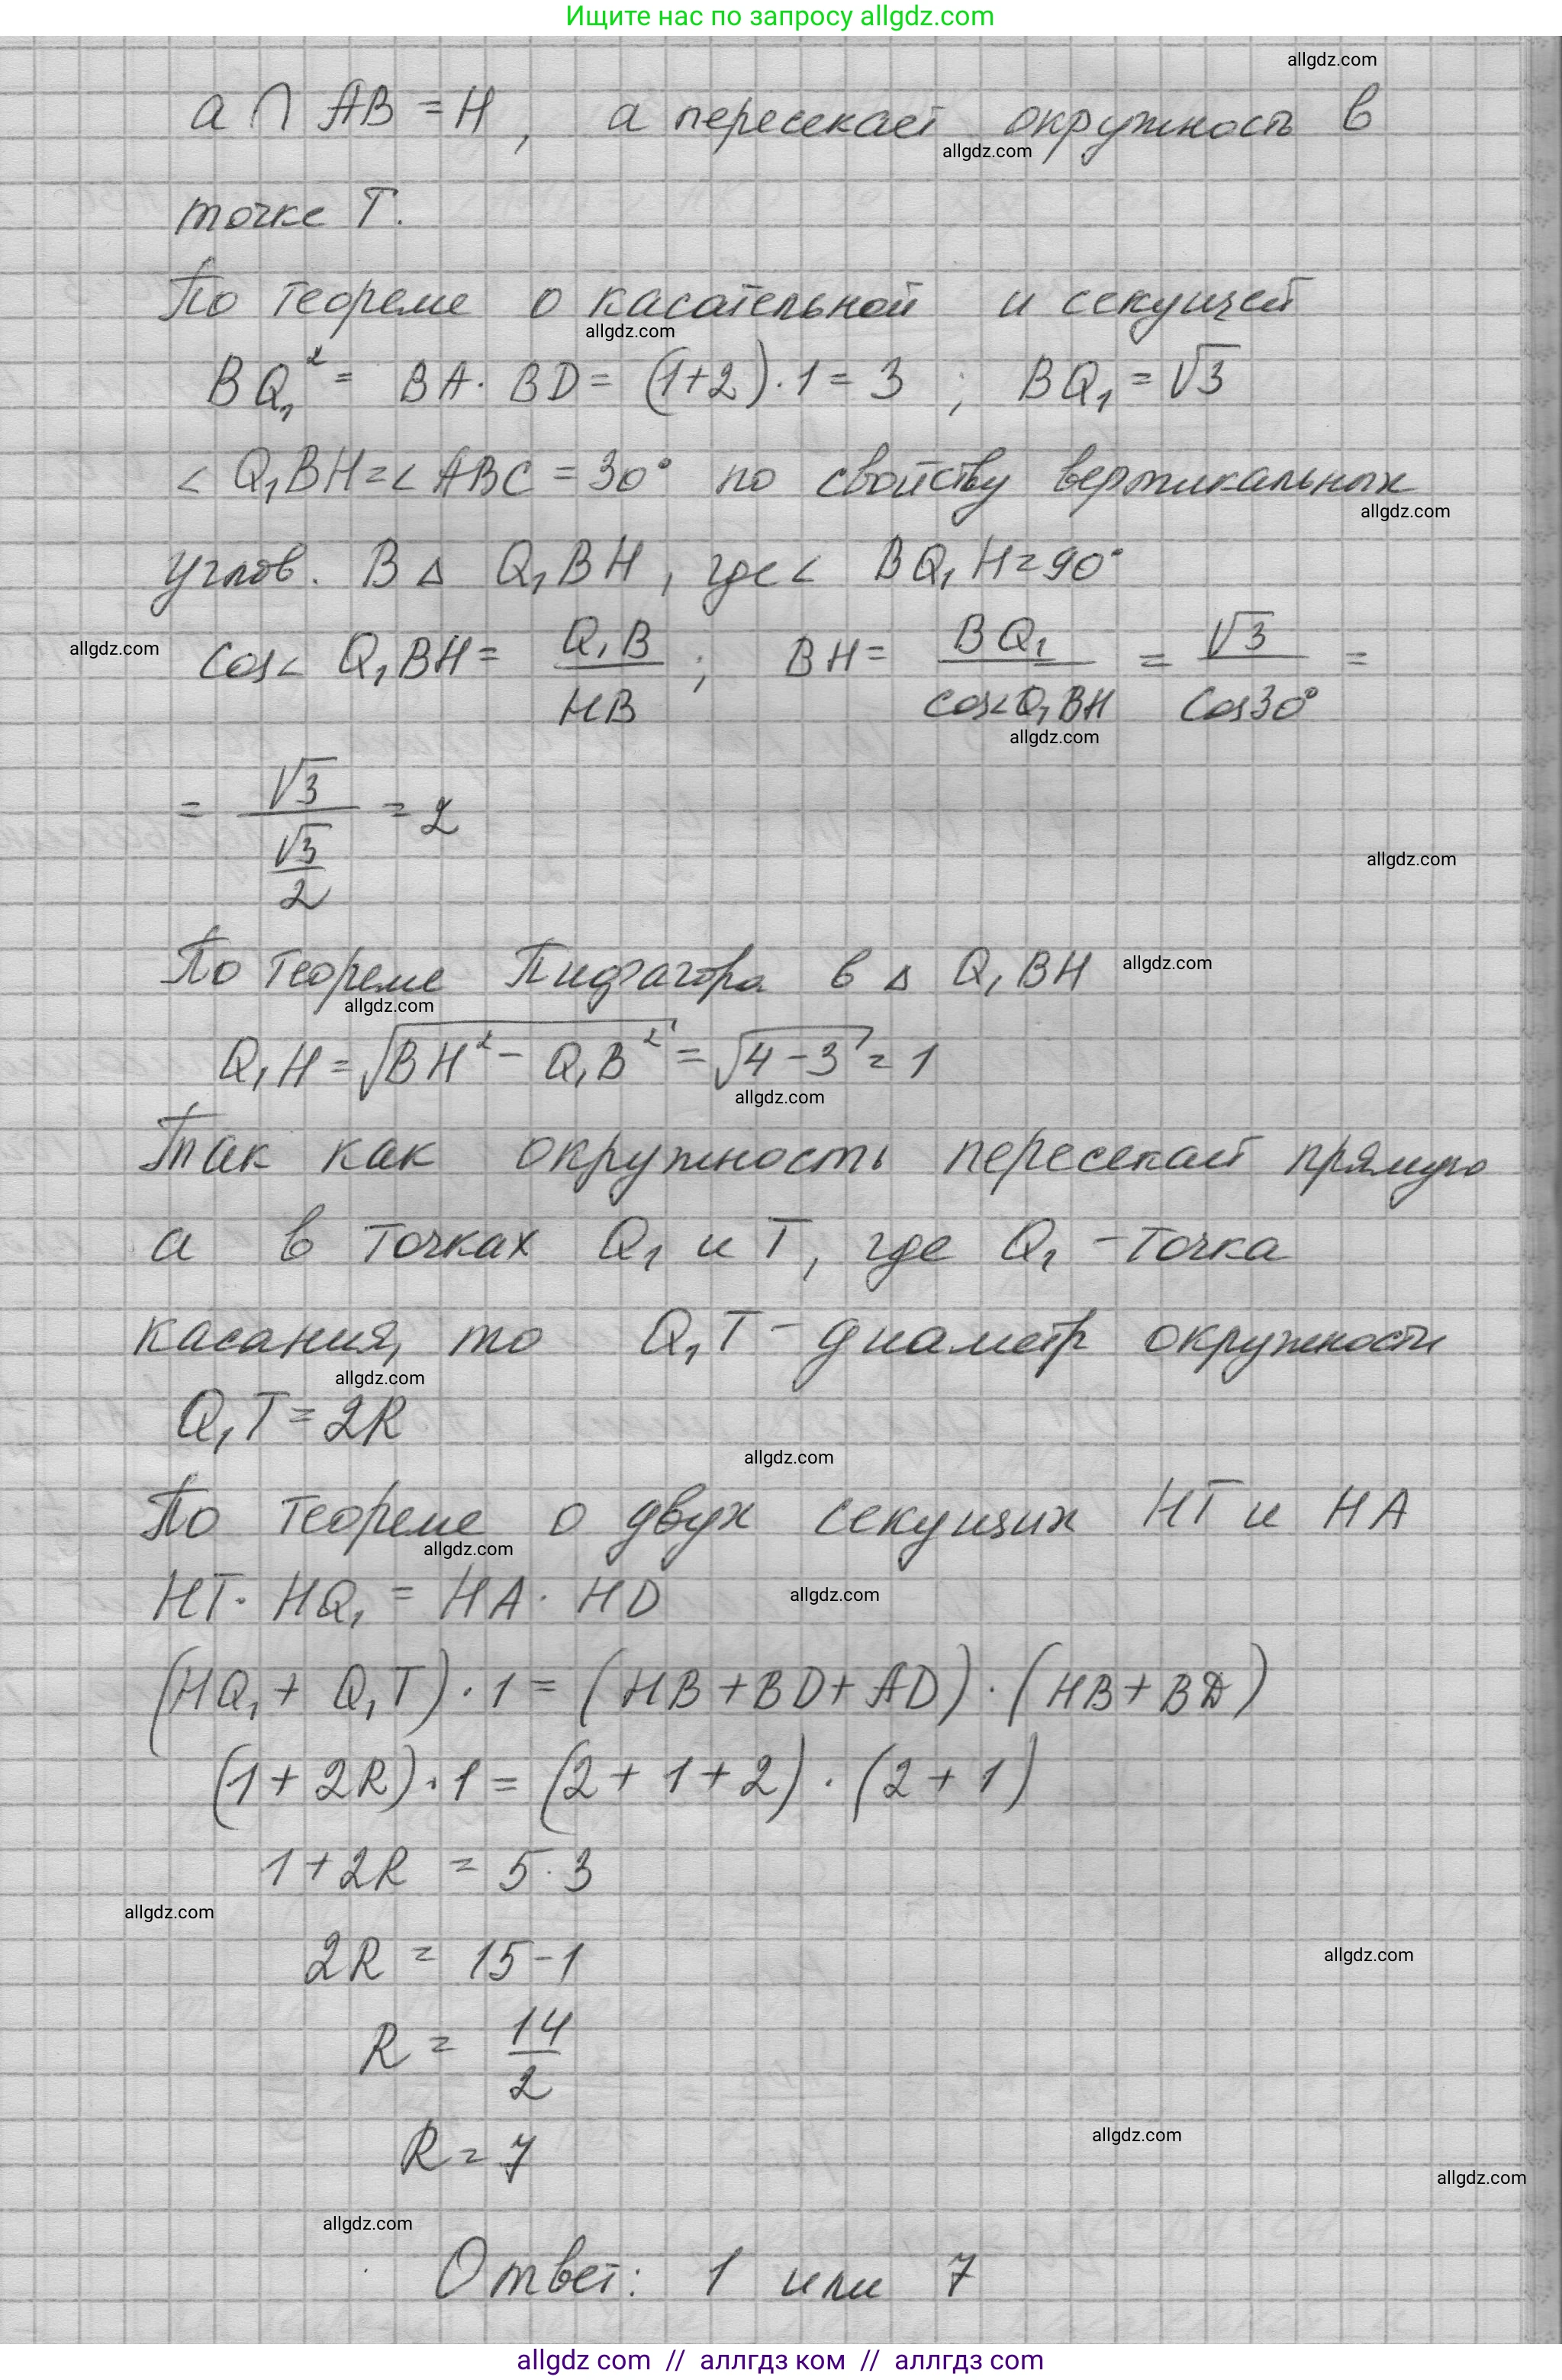 Ищите нас по запросу allgdz.com
allgdz.com
a ∩ AB = H, a пересекает окружность в
allgdz.com
точке T.
По теореме о касательной и секущей
allgdz.com
BQ₁² = BA · BD = (1+2) · 1 = 3 ; BQ₁ = √3
∠ Q₁BH = ∠ ABC = 30° по свойству вертикальных
allgdz.com
углов. В △ Q₁BH, где ∠ BQ₁H = 90°
allgdz.com
cos∠ Q₁BH = Q₁B/HB ; BH = BQ₁/cos∠Q₁BH = √3/cos30° =
allgdz.com
= √3/(√3/2) = 2
allgdz.com
По теореме Пифагора в △ Q₁BH
allgdz.com
allgdz.com
Q₁H = √(BH² - Q₁B²) = √(4-3) = 1
allgdz.com
Так как окружность пересекает прямую
a в точках Q₁ и T, где Q₁ - точка
касания, то Q₁T - диаметр окружности
allgdz.com
Q₁T = 2R
allgdz.com
По теореме о двух секущих HT и HA
allgdz.com
HT · HQ₁ = HA · HD
allgdz.com
(HQ₁ + Q₁T) · 1 = (HB + BD + AD) · (HB + BD)
(1 + 2R) · 1 = (2 + 1 + 2) · (2 + 1)
1 + 2R = 5 · 3
allgdz.com
2R = 15 - 1
allgdz.com
R = 14/2
R = 7
allgdz.com
allgdz.com
allgdz.com
Ответ: 1 или 7
allgdz com // аллгдз ком // аллгдз com